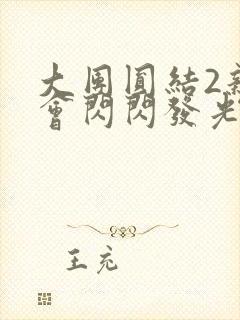 大團圓結2新
會閃閃發光
王充